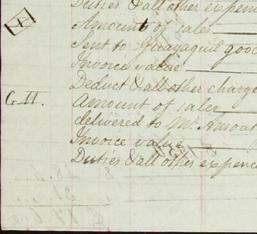 Duties & all other expence
Amount of sales
Sent to Guayaquil good
Invoice value
Deduct & all other charge
G.H. Amount of sales
delivered to Mr.
Invoice value
Duties & all other expence